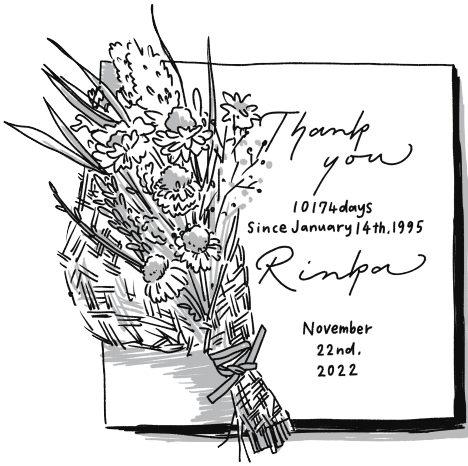 Thank
you
10174days
Since January 14th, 1995
Rinka
November
22nd.
2022